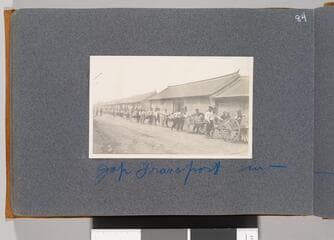 94
Jap Transport in —